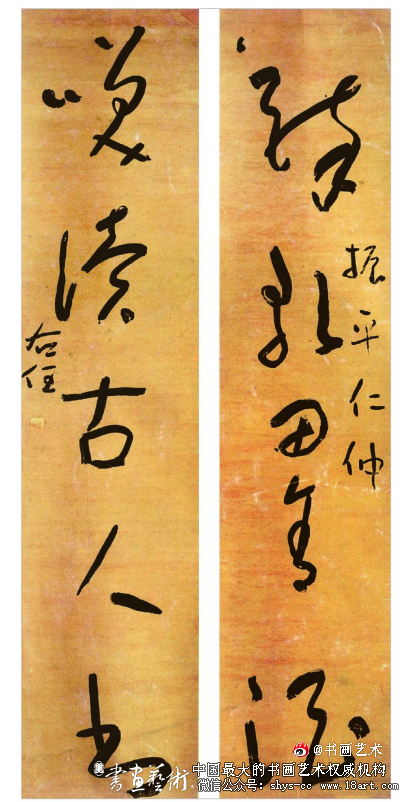 醉歌田舍酒
振平仁仲
咲讀古人書
右任
書畫藝術
@书画艺术
中国最大的书画艺术权威机构
微信公众号：shys-cc www.18art.com